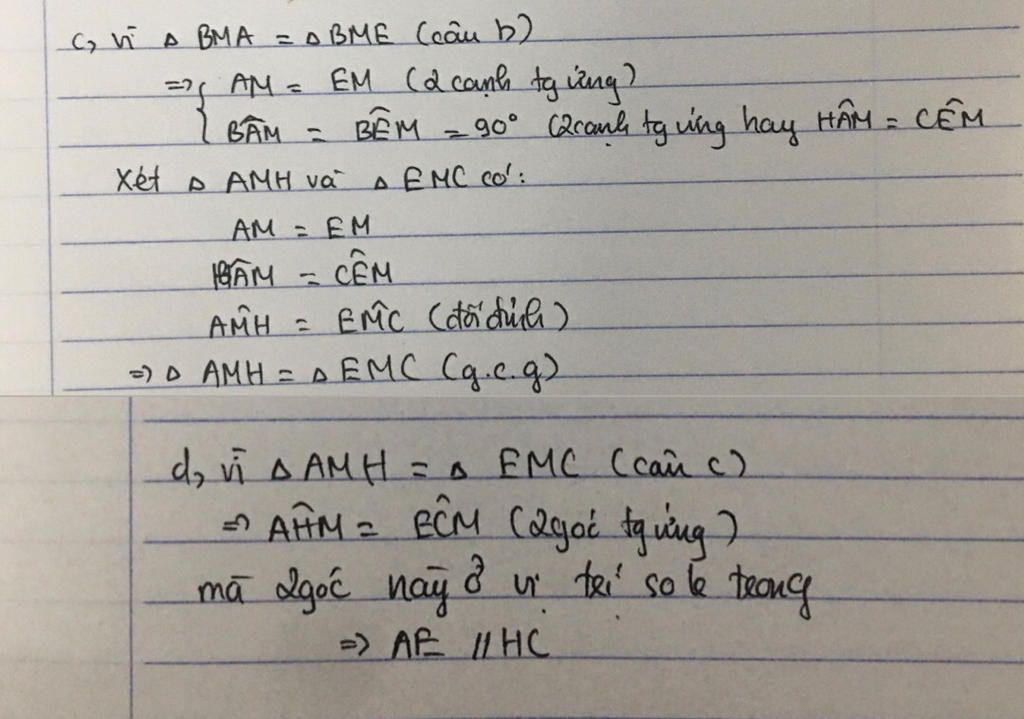 c, vì Δ BMA = Δ BME (câu b)
=> { AM = EM (2 cạnh tg ứng)
BÂM = BÊM = 90° (2 cạnh tg ứng hay HÂM = CÊM
Xét Δ AMH và Δ EMC có:
AM = EM
HÂM = CÊM
AM̂H = EM̂C (đối đỉnh)
=> Δ AMH = Δ EMC (g.c.g)
d, vì Δ AMH = Δ EMC (câu c)
=> AĤM = EĈM (2 góc tg ứng)
mà 2 góc này ở vị trí so le trong
=> AE // HC